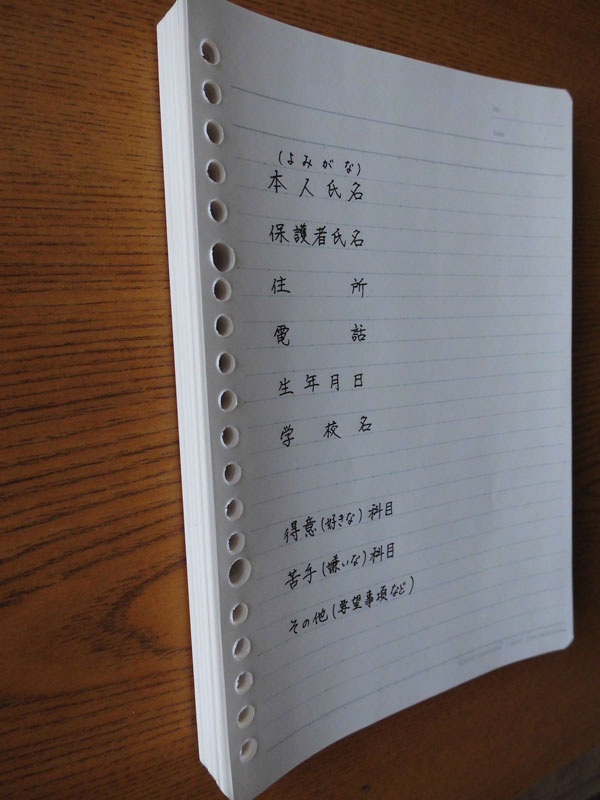 No.
Date
(よみがな)
本人氏名
保護者氏名
住 所
電 話
生年月日
学校名
得意(好きな)科目
苦手(嫌いな)科目
その他(要望事項など)